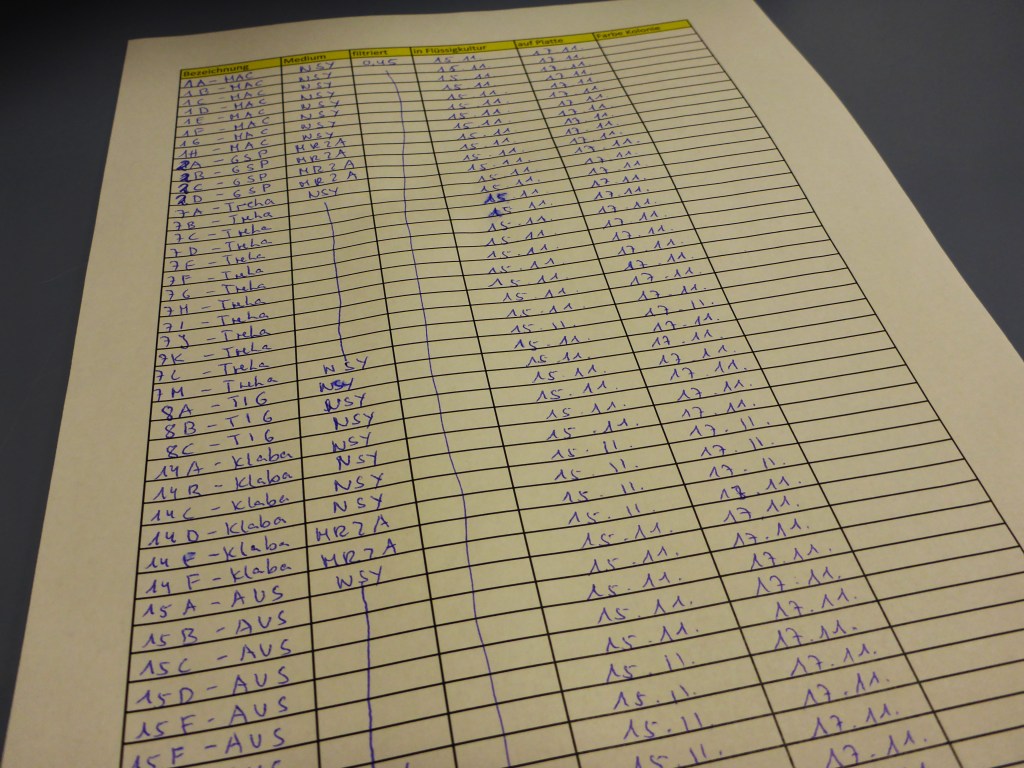 Bezeichnung Medium filtriert in Flüssigkultur auf Platte Farbe Kolonie
1A - MAC NSY 0,45 15.11. 17.11.
1B - MAC NSY 15.11. 17.11.
1C - MAC NSY 15.11. 17.11.
1D - MAC NSY 15.11. 17.11.
MAC NSY 15.11. 17.11.
1F - MAC NSY 15.11. 17.11.
1G - MAC NSY 15.11. 17.11.
1H - MAC MRZA 15.11. 17.11.
2A - GSP MRZA 15.11. 17.11.
2B - GSP MRZA 15.11. 17.11.
2C - GSP MRZA 15.11. 17.11.
2D - GSP NSY 15.11. 17.11.
7A - Treha 15.11. 17.11.
7B - Treha 15.11. 17.11.
7C - Treha 15.11. 17.11.
7D - Treha 15.11. 17.11.
7E - Treha 15.11. 17.11.
7F - Treha 15.11. 17.11.
7G - Treha 15.11. 17.11.
7H - Treha 15.11. 17.11.
7I - Treha 15.11. 17.11.
7J - Treha 15.11. 17.11.
7K - Treha 15.11. 17.11.
7L - Treha 15.11. 17.11.
7M - Treha NSY 15.11. 17.11.
8A - TIG NSY 15.11. 17.11.
8B - TIG NSY 15.11. 17.11.
8C - TIG NSY 15.11. 17.11.
14A - Klaba NSY 15.11. 17.11.
14B - Klaba NSY 15.11. 17.11.
14C - Klaba NSY 15.11. 17.11.
14D - Klaba NSY 15.11. 17.11.
14E - Klaba MRZA 15.11. 17.11.
14F - Klaba MRZA 15.11. 17.11.
15A - AUS NSY 15.11. 17.11.
15B - AUS 15.11. 17.11.
15C - AUS 15.11. 17.11.
15D - AUS 15.11. 17.11.
15E - AUS 15.11. 17.11.
15F - AUS 15.11. 17.11.